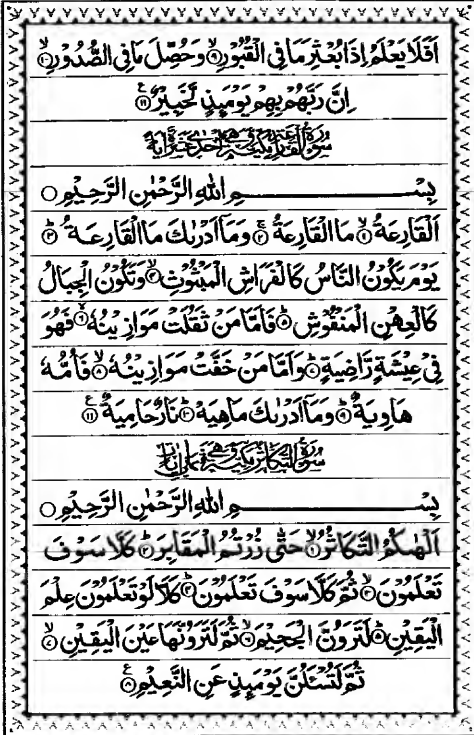 اَفَلَا يَعْلَمُ اِذَا بُعْثِرَ مَا فِى الْقُبُوْرِۙ‏﴿۹﴾ وَحُصِّلَ مَا فِى الصُّدُوْرِۙ‏﴿۱۰﴾
اِنَّ رَبَّهُمْ بِهِمْ يَوْمَىِٕذٍ لَّخَبِيْرٌ‏﴿۱۱﴾ ع
سُوْرَةُ الْقَارِعَةِ مَكِّيَّةٌ وَّهِىَ اِحْدٰى عَشْرَةَ اٰيَةً
بِسْمِ اللهِ الرَّحْمٰنِ الرَّحِيْمِ ○
اَلْقَارِعَةُۙ‏﴿۱﴾ مَا الْقَارِعَةُۚ‏﴿۲﴾ وَمَاۤ اَدْرٰىكَ مَا الْقَارِعَةُؕ‏﴿۳﴾
يَوْمَ يَكُوْنُ النَّاسُ كَالْفَرَاشِ الْمَبْثُوْثِۙ‏﴿۴﴾ وَتَكُوْنُ الْجِبَالُ
كَالْعِهْنِ الْمَنْفُوْشِؕ‏﴿۵﴾ فَاَمَّا مَنْ ثَقُلَتْ مَوَازِيْنُهٗۙ‏﴿۶﴾ فَهُوَ
فِىْ عِيْشَةٍ رَّاضِيَةٍؕ‏﴿۷﴾ وَاَمَّا مَنْ خَفَّتْ مَوَازِيْنُهٗۙ‏﴿۸﴾ فَاُمُّهٗ
هَاوِيَةٌؕ‏﴿۹﴾ وَمَاۤ اَدْرٰىكَ مَا هِيَهْؕ‏﴿۱۰﴾ نَارٌ حَامِيَةٌ‏﴿۱۱﴾ ع
سُوْرَةُ التَّكَاثُرِ مَكِّيَّةٌ وَّهِىَ ثَمَانِىْ اٰيَاتٍ
بِسْمِ اللهِ الرَّحْمٰنِ الرَّحِيْمِ ○
اَلْهٰىكُمُ التَّكَاثُرُۙ‏﴿۱﴾ حَتّٰى زُرْتُمُ الْمَقَابِرَؕ‏﴿۲﴾ كَلَّا سَوْفَ
تَعْلَمُوْنَۙ‏﴿۳﴾ ثُمَّ كَلَّا سَوْفَ تَعْلَمُوْنَؕ‏﴿۴﴾ كَلَّا لَوْ تَعْلَمُوْنَ عِلْمَ
الْيَقِيْنِؕ‏﴿۵﴾ لَتَرَوُنَّ الْجَحِيْمَۙ‏﴿۶﴾ ثُمَّ لَتَرَوُنَّهَا عَيْنَ الْيَقِيْنِۙ‏﴿۷﴾
ثُمَّ لَتُسْــَٔلُنَّ يَوْمَىِٕذٍ عَنِ النَّعِيْمِ‏﴿۸﴾ ع